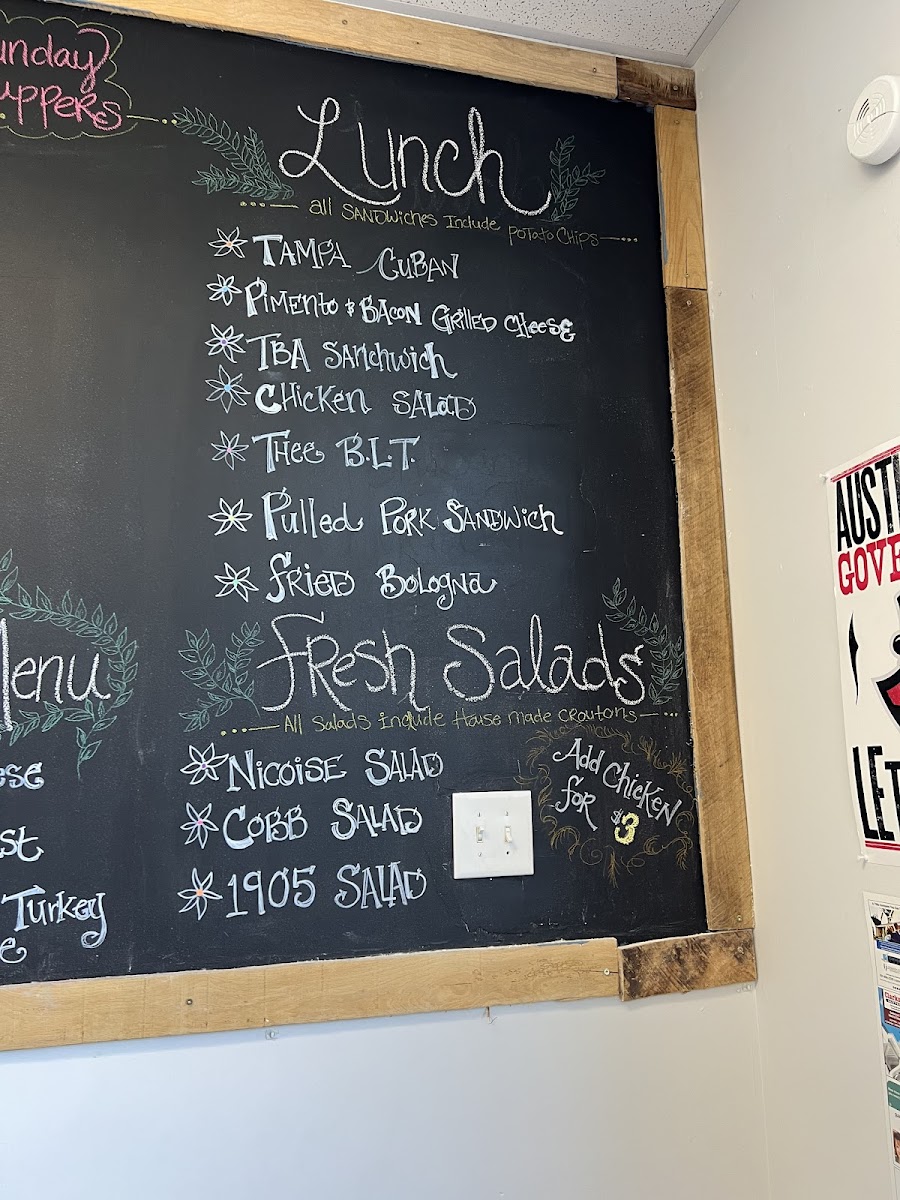 Lunch
all SANDWiCHES Include POTATO CHIPS
TAMPA CUBAN
PiMENto & BACON GRilled CHeeSE
TBA SANdwich
CHicken SALAD
THEE B.L.T.
Pulled PORK SANDWicH
FRiED Bologna
FResh Salads
All Salads Include House made CROUTONS
NiCOISE SALAD
COBB SALAD
1905 SALAD
Add CHicKEN
foR $3
enu
st
Turkey
AUST
GOVE
LET